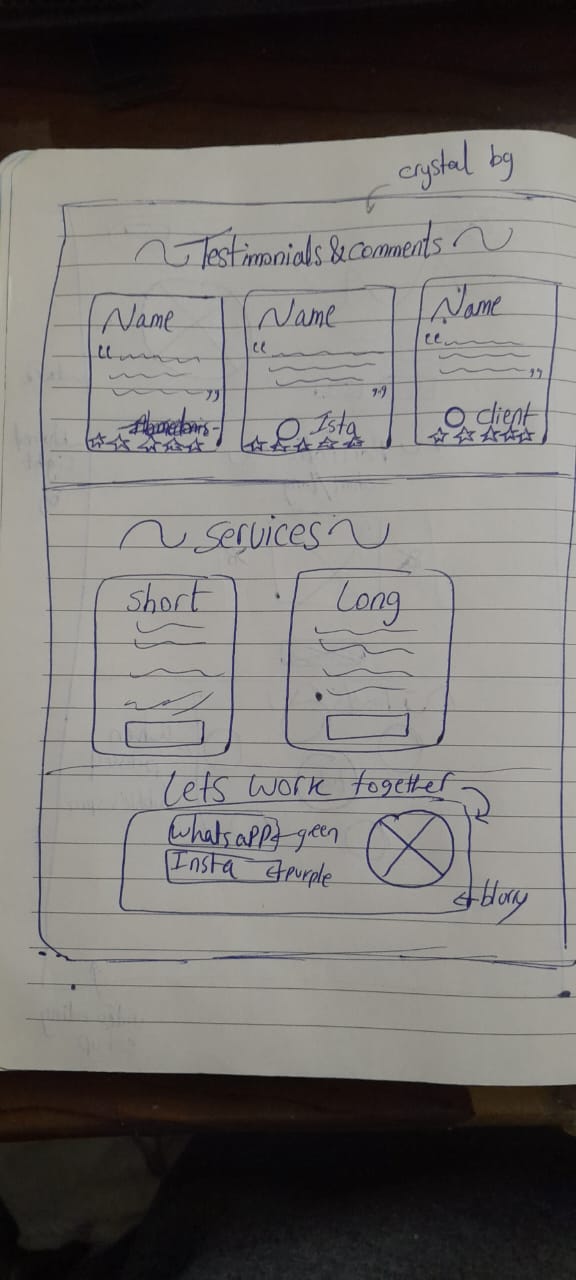 crystal bg
Testimonials & comments
Name Name Name
Ista client
services
short Long
Lets work together
whatsapp geen
Insta purple
blory